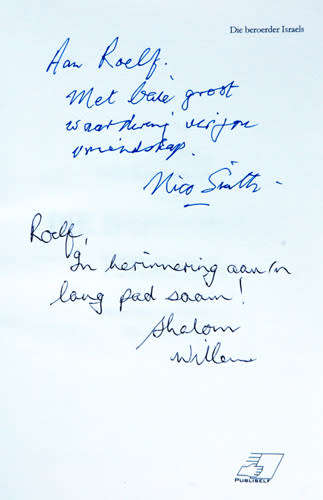 Die beroerder Israels
Aan Roelf.
Met baie groot
waardering vir jou
vriendskap.
Nico Smith
Roelf,
In herinnering aan 'n
lang pad saam!
Shalom
Willem
PUBLISELF